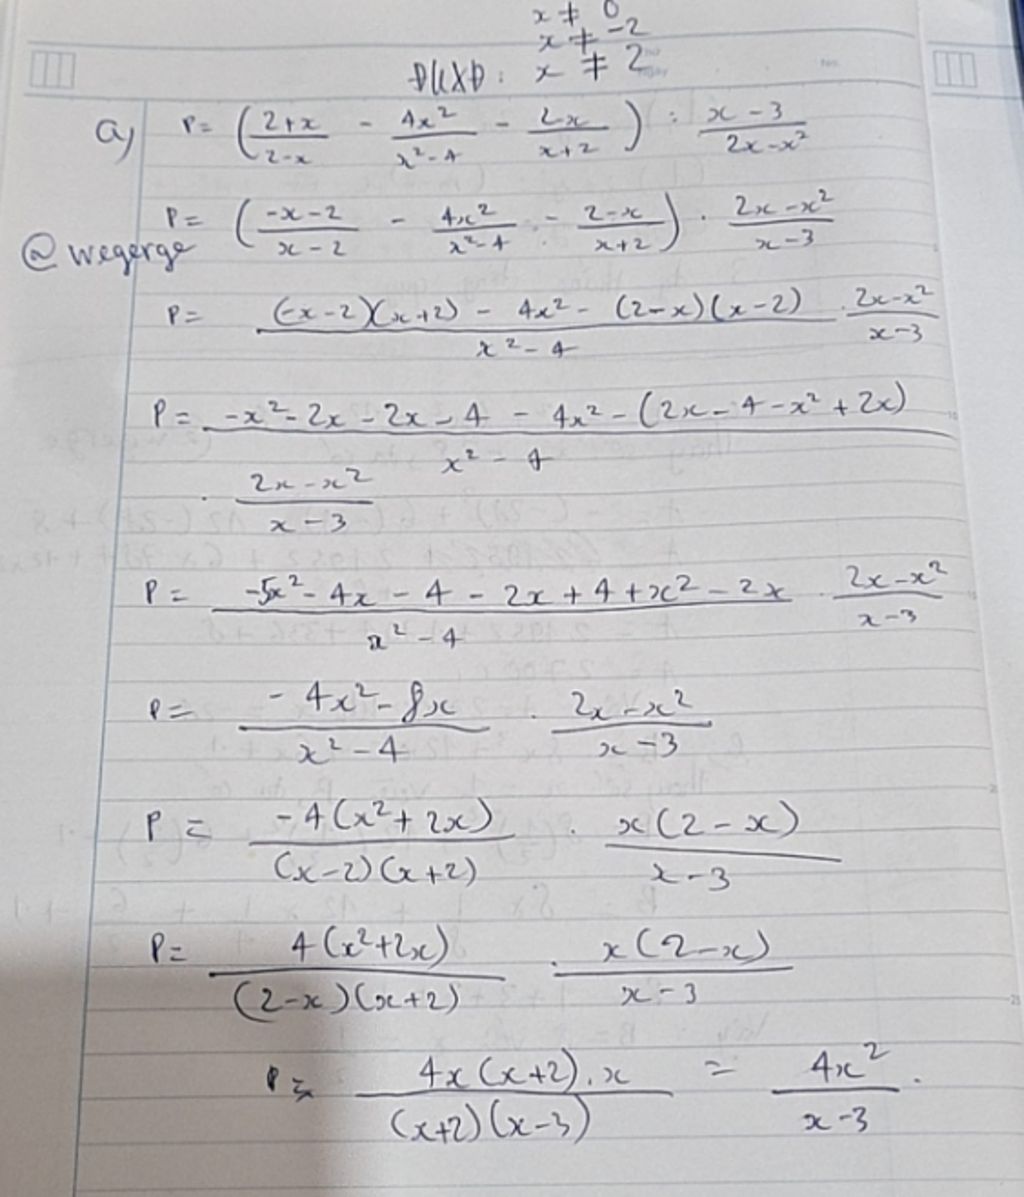 x ≠ 0
x ≠ -2
ĐKXĐ: x ≠ 2
a) P = ( (2+x)/(2-x) - 4x²/(x²-4) - (2-x)/(x+2) ) : (x-3)/(2x-x²)
P = ( (-x-2)/(x-2) - 4x²/(x²-4) - (2-x)/(x+2) ) . (2x-x²)/(x-3)
@wegerge
P = ((-x-2)(x+2) - 4x² - (2-x)(x-2))/(x²-4) . (2x-x²)/(x-3)
P = (-x²-2x-2x-4 - 4x² - (2x-4-x²+2x))/(x²-4)
. (2x-x²)/(x-3)
P = (-5x²-4x-4-2x+4+x²-2x)/(x²-4) . (2x-x²)/(x-3)
P = (-4x²-8x)/(x²-4) . (2x-x²)/(x-3)
P = -4(x²+2x)/((x-2)(x+2)) . x(2-x)/(x-3)
P = 4(x²+2x)/((2-x)(x+2)) . x(2-x)/(x-3)
P = 4x(x+2).x/((x+2)(x-3)) = 4x²/(x-3).